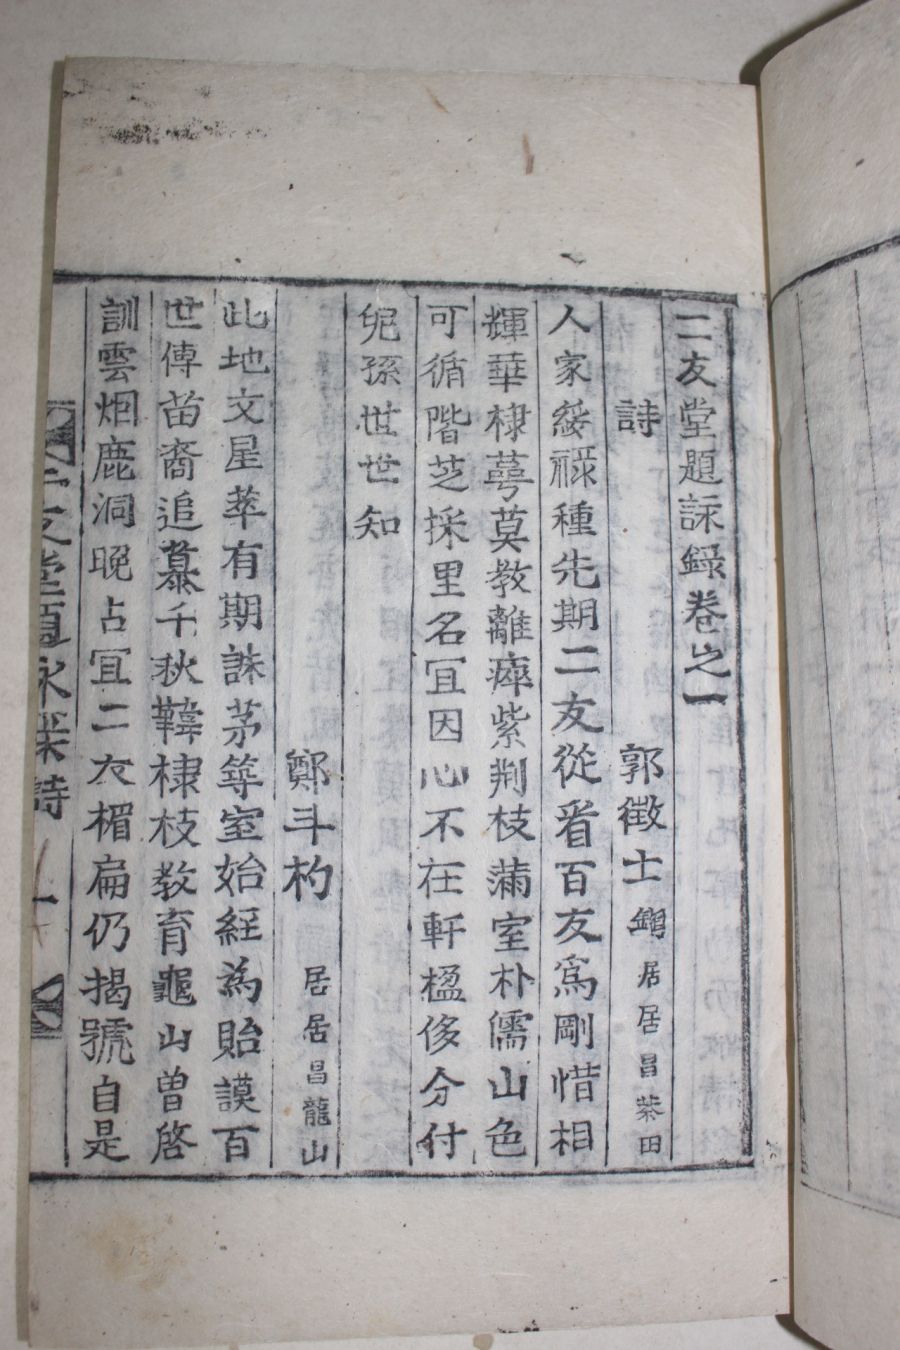 二友堂題詠錄卷之一
詩　郭徵士　居居昌茶田
人家綏祿種先期二友從看百友爲剛惜相
輝華棣萼莫教離瘁紫荆枝滿室朴儒山色
可循階芝採里名冝因心不在軒楹侈分付
兒孫世世知
鄭斗杓　居居昌龍山
此地文星萃有期誅茅筭室始経為貽謨百
世傳苗裔追慕千秋韡棣枝教育龜山曾啓
訓雲烟鹿洞晩占冝二友楣扁仍揭號自是
二友堂題詠錄　詩　一